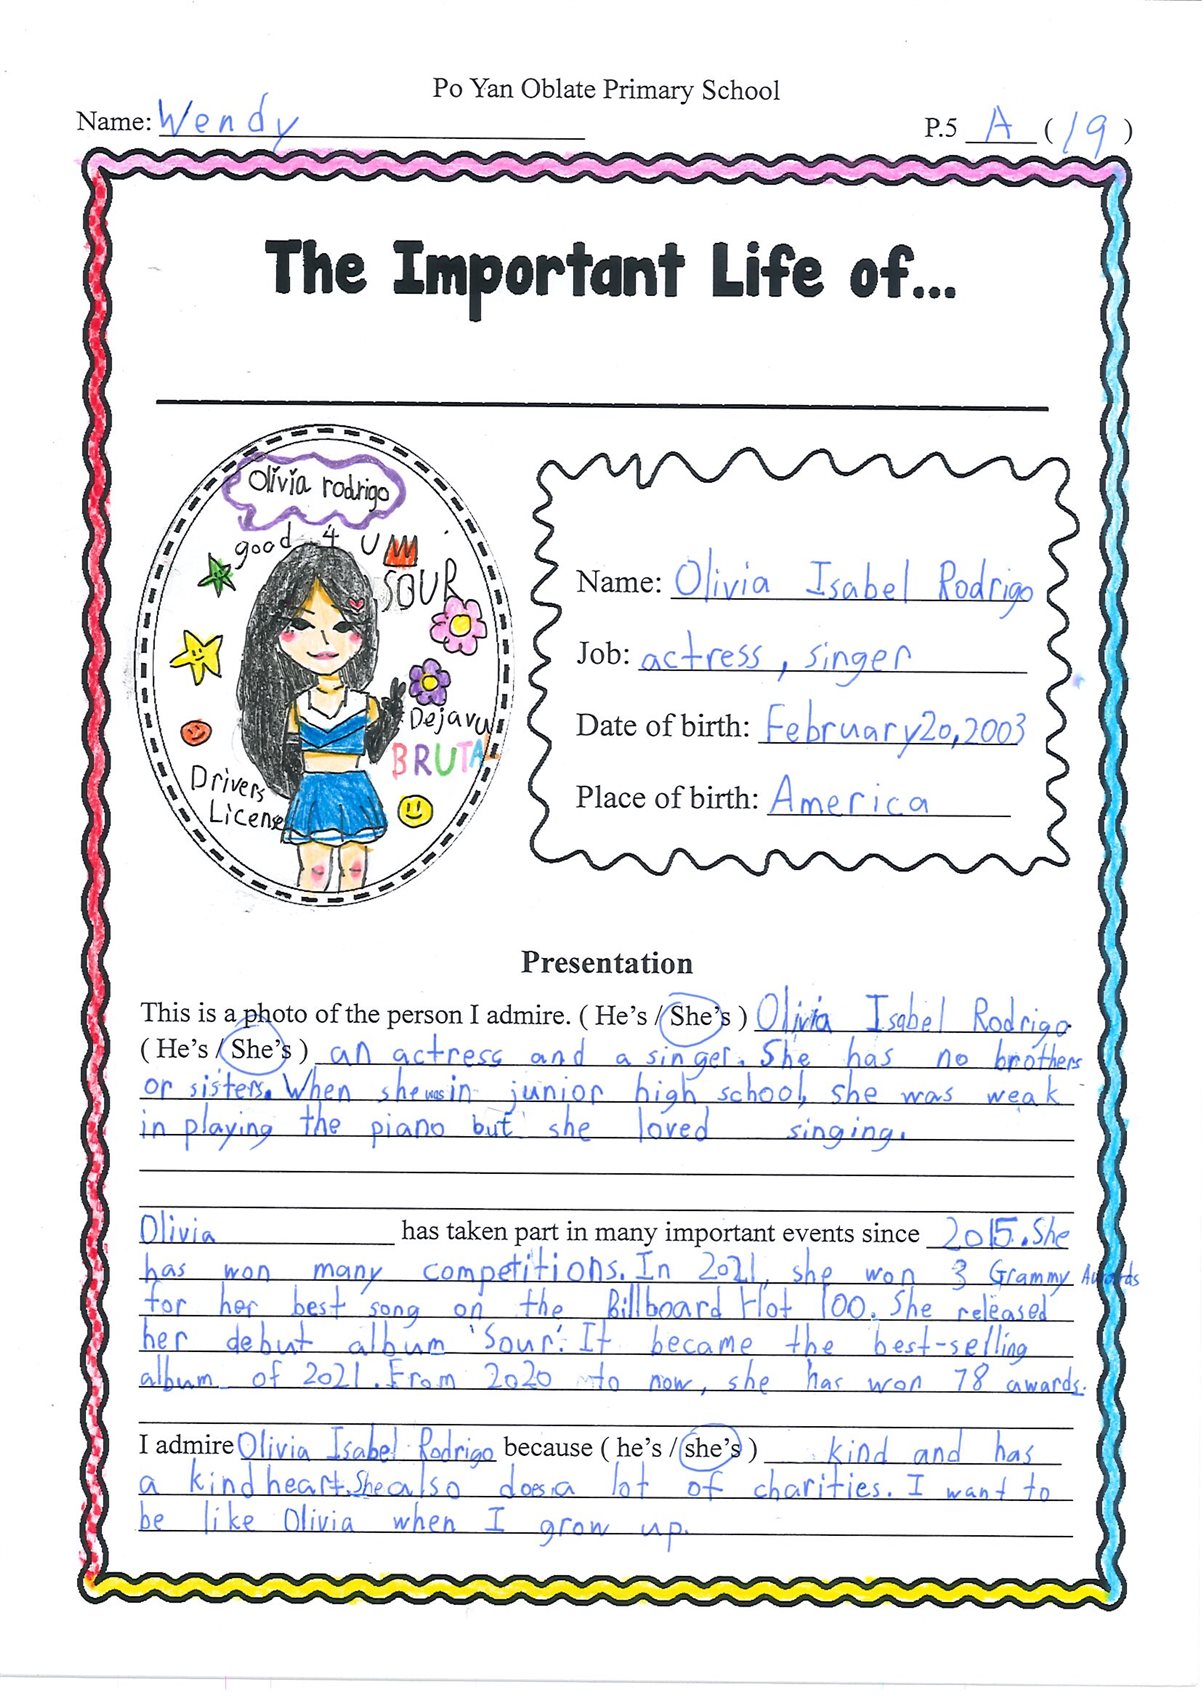 Po Yan Oblate Primary School
Name: Wendy P.5 A (19)
The Important Life of...
Olivia rodrigo
good 4 U
SOUR
Dejavu
BRUTAL
Drivers
License
Name: Olivia Isabel Rodrigo
Job: actress, singer
Date of birth: February 20, 2003
Place of birth: America
Presentation
This is a photo of the person I admire. ( He's / She's ) Olivia Isabel Rodrigo
( He's / She's ) an actress and a singer. She has no brothers
or sisters. When she was in junior high school, she was weak
in playing the piano but she loved singing.
Olivia has taken part in many important events since 2015. She
has won many competitions. In 2021, she won 3 Grammy Awards
for her best song on the Billboard Hot 100. She released
her debut album 'Sour'. It became the best-selling
album of 2021. From 2020 to now, she has won 78 awards.
I admire Olivia Isabel Rodrigo because ( he's / she's ) kind and has
a kind heart. She also does a lot of charities. I want to
be like Olivia when I grow up.